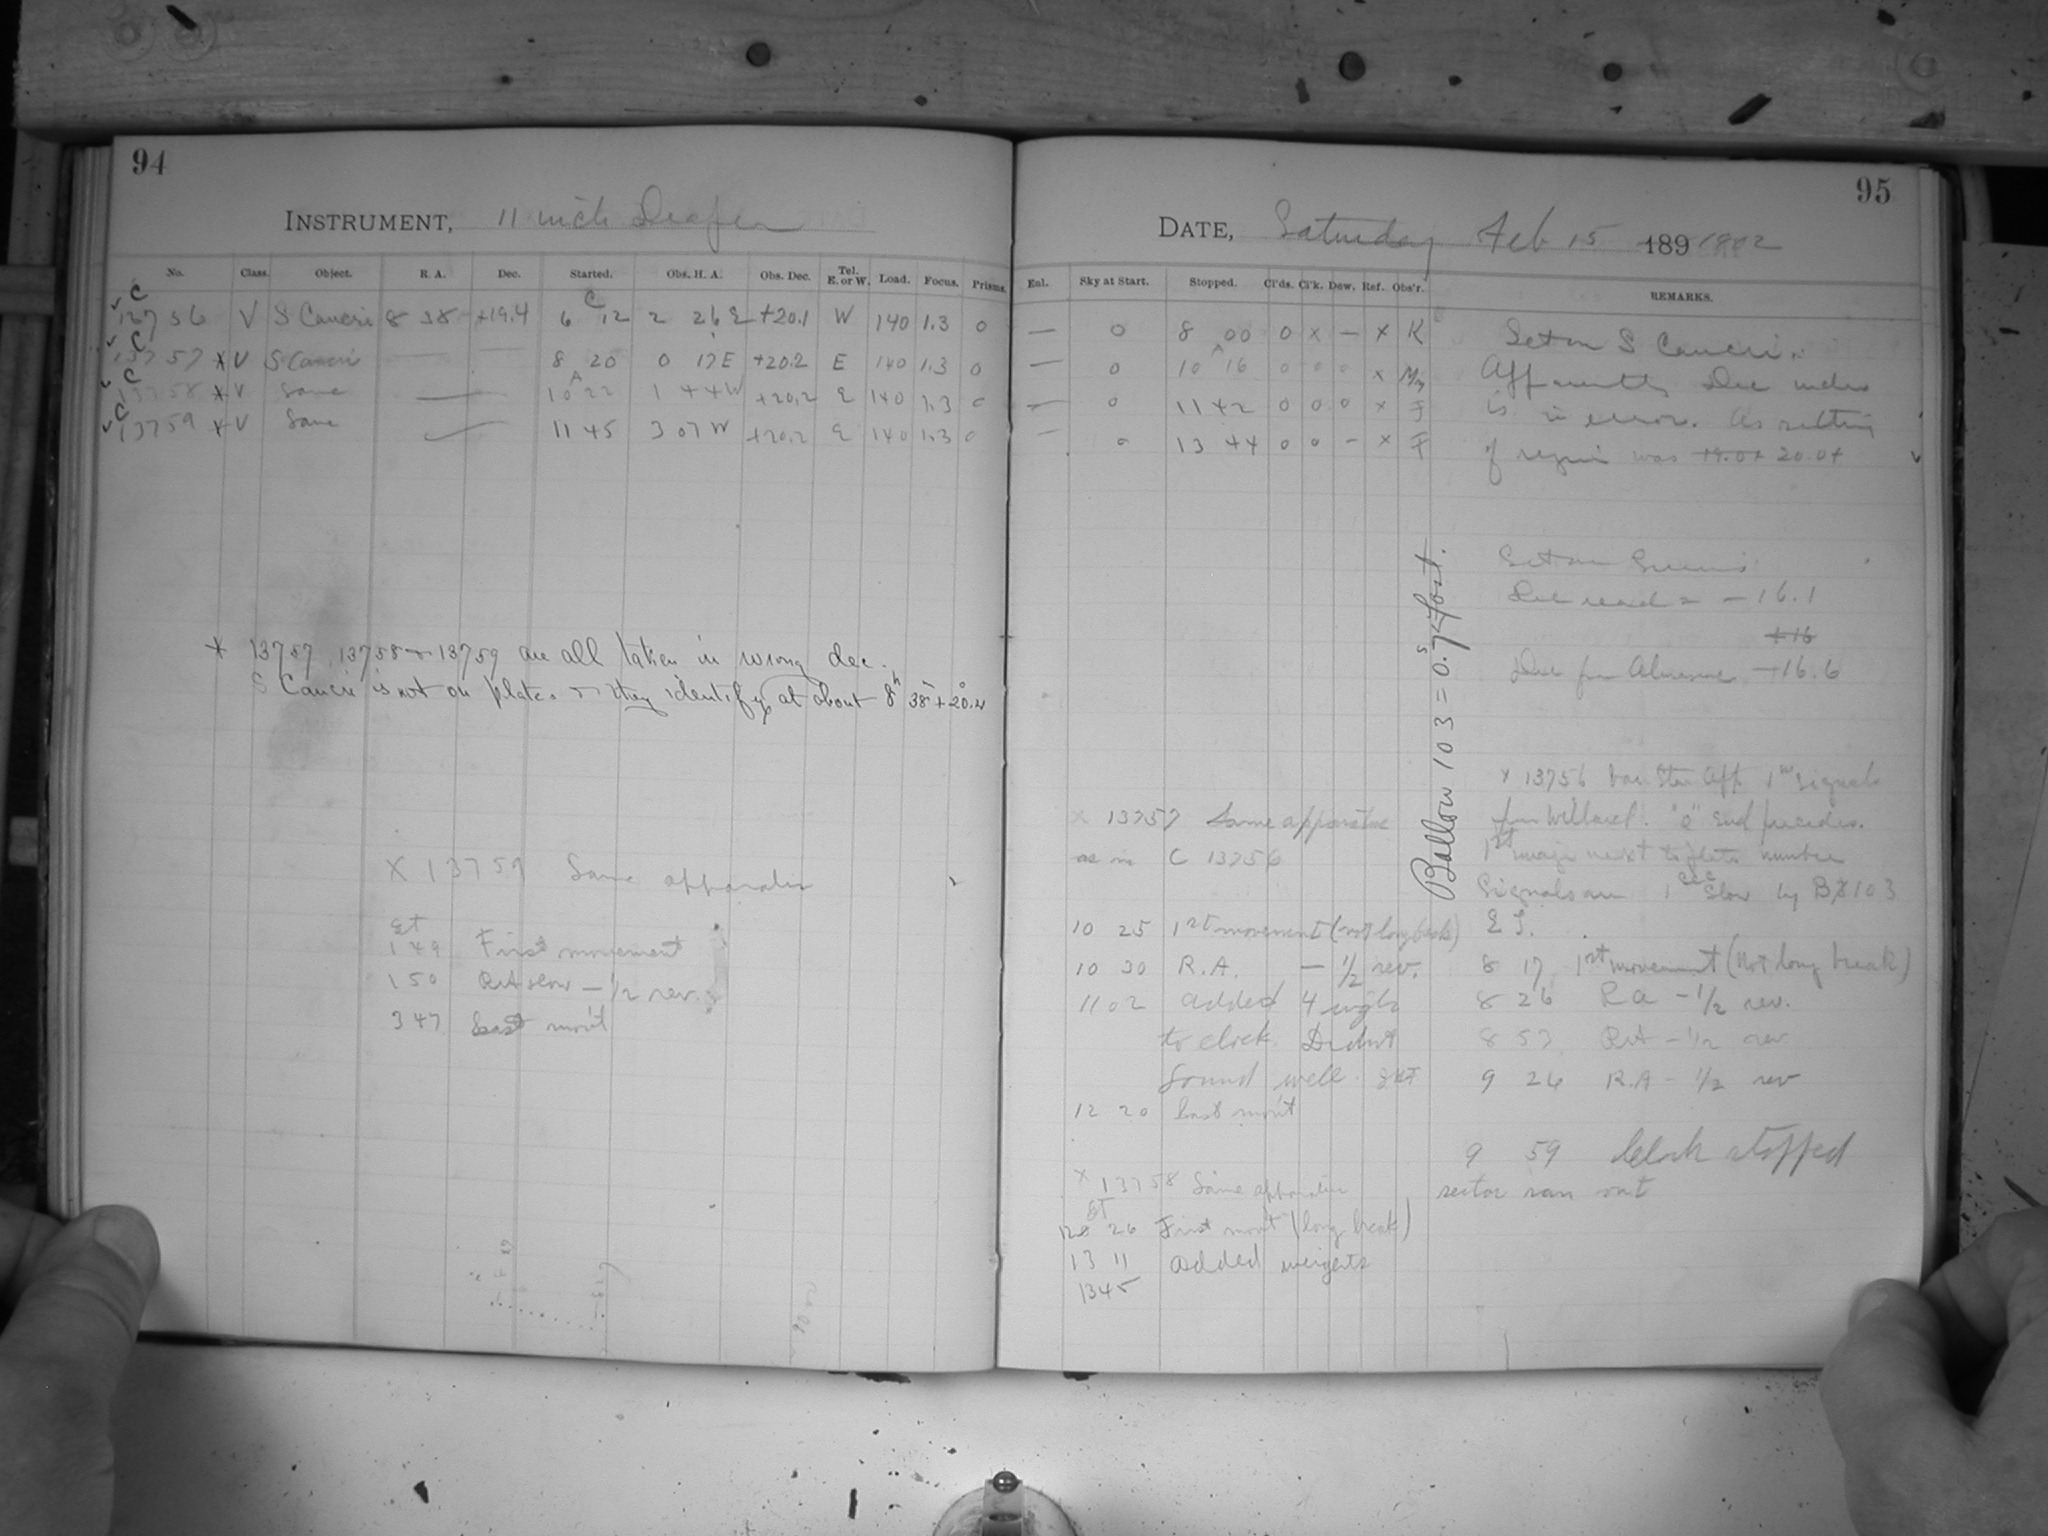 94
INSTRUMENT, 11 inch Draper
No. Class. Object. R. A. Dec. Started. Obs. H. A. Obs. Dec. Tel. E. or W. Load. Focus. Prisms.
C
13756 V S Cancri 8 38 +19.4 6 12 2 26 E +20.1 W 140 1.3 0
C
13757 X V S Cancri — — 8 20 0 17 E +20.2 E 140 1.3 0
C
13758 X V Same — 10 22 1 44 W +20.2 E 140 1.3 0
C
13759 X V Same 11 45 3 07 W +20.2 E 140 1.3 0
X 13757, 13758 & 13759 are all taken in wrong dec.
S Cancri is not on plates they identify at about 8h 38m +20.4
X 13759 Same apparatus
ST
1 49 First movement
1 50 RA slow — 1/2 rev.
3 47 Last mov't
95
DATE, Saturday Feb 15 189 1902
Enl. Sky at Start. Stopped. Cl'ds. Cl'k. Dew. Ref. Obs'r. REMARKS.
— 0 8 00 0 x — x K
— 0 10 16 0 0 0 x My
— 0 11 42 0 0 0 x F
— 0 13 44 0 0 — x F
Set on S Cancri.
Apparently Dec index
is in error. As setting
of region was 19.0+ 20.0+
Set on
Dec read = —16.1
+16
Dec from Almanac —16.6
Ballow 103 = 0.7s fast.
X 13756 Var Star App 1st signals
from Willard. "0" end precedes.
1st image next to plate number
Signals are 1 sec slow by B 103
E T.
8 17 1st movement (Not long break)
8 26 R A — 1/2 rev.
8 53 RA — 1/2 rev
9 26 R.A — 1/2 rev
9 59 Clock stopped
sector ran out
X 13757 Same apparatus
as in C 13756
10 25 1st movement (not long break)
10 30 R.A. — 1/2 rev.
11 02 added 4 wghts
to clock. Didn't
sound well.
12 20 last mov't
X 13758 Same apparatus
ST
26 First mov't (long break)
13 11 added weights
13 45